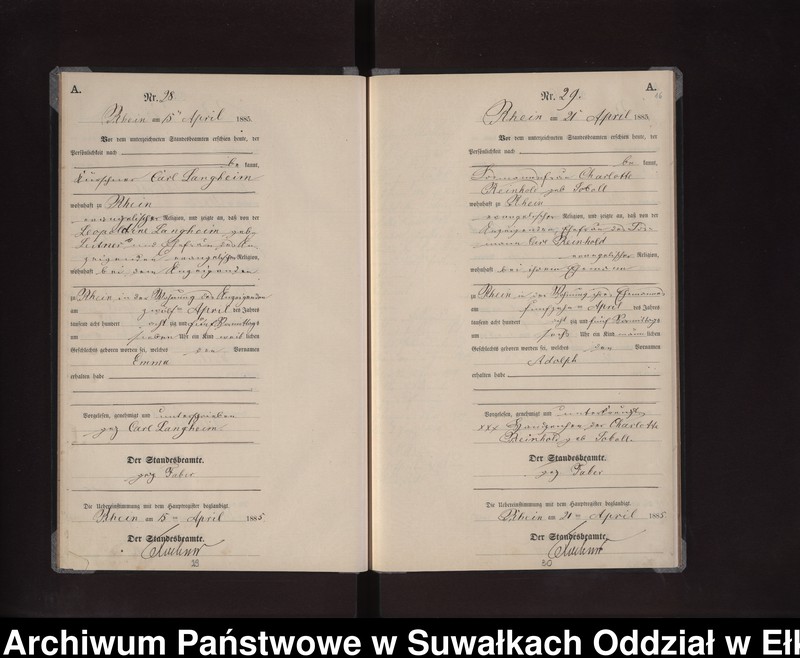 A.
Nr. 28
Rhein am 15ten April 1885.
Vor dem unterzeichneten Standesbeamten erschien heute, der
Persönlichkeit nach
be kannt,
Carl Langheim
wohnhaft zu Rhein
evangelischer Religion, und zeigte an, daß von der
Leopoldine Langheim geb.
evangelischer Religion,
wohnhaft bei dem Anzeigenden
zu Rhein in der Wohnung des Anzeigenden
am zwölften April des Jahres
tausend acht hundert acht zig und fünf Vormittags
um sieben Uhr ein Kind weib lichen
Geschlechts geboren worden sei, welches den Vornamen
Emma
erhalten habe
Vorgelesen, genehmigt und unterschrieben
gez Carl Langheim
Der Standesbeamte.
gez Faber
Die Uebereinstimmung mit dem Hauptregister beglaubigt.
Rhein am 15ten April 1885
Der Standesbeamte.
29
A.
16
Nr. 29.
Rhein am 21ten April 1885.
Vor dem unterzeichneten Standesbeamten erschien heute, der
Persönlichkeit nach
be kannt,
Charlotte
Reinhold geb Sobott
wohnhaft zu Rhein
evangelischer Religion, und zeigte an, daß von der
Anzeigenden Ehefrau des
Carl Reinhold
evangelischer Religion,
wohnhaft bei ihrem Ehemann
zu Rhein in der Wohnung ihres Ehemannes
am fünfzehnten April des Jahres
tausend acht hundert acht zig und fünf Vormittags
um sechs Uhr ein Kind männ lichen
Geschlechts geboren worden sei, welches den Vornamen
Adolph
erhalten habe
Vorgelesen, genehmigt und unterkreuzt
xxx Handzeichen der Charlotte
Reinhold geb Sobott.
Der Standesbeamte.
gez Faber
Die Uebereinstimmung mit dem Hauptregister beglaubigt.
Rhein am 21ten April 1885
Der Standesbeamte.
30
Archiwum Państwowe w Suwałkach Oddział w Ełk